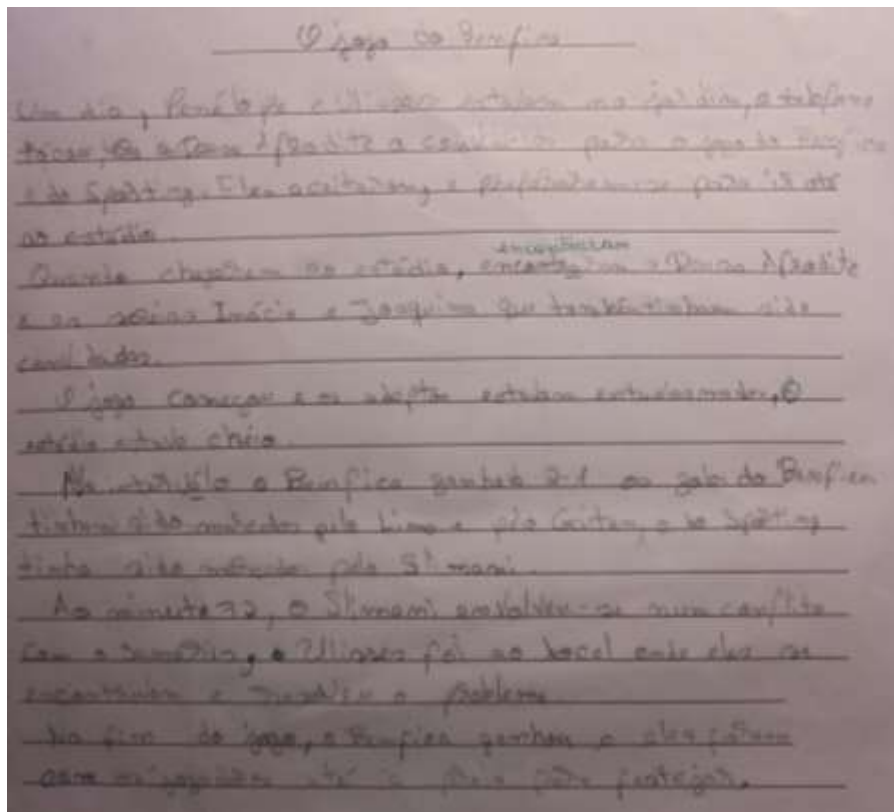 O jogo do Benfica
Um dia, Penélope e Ulisses estavam no jardim, o telefone
tocou, a Dona Afrodite a para o jogo do Benfica
e do Sporting. Eles aceitaram, e para ir até
ao estádio.
Quando chegaram ao estádio, encontraram a Dona Afrodite
e os Inácio e Joaquim que tinham sido

O jogo começou e os adeptos estavam entusiasmados, O
estádio cheio.
o Benfica 2-1 os golos do Benfica
tinham sido marcados pelo Lima e pelo Gaitan, o do Sporting
tinha sido marcado pelo Slimani.
Ao minuto 72, o Slimani envolveu-se num conflito
com o o Ulisses foi ao local onde eles se
encontravam e resolveu o problema.
No fim do jogo, o Benfica ganhou e eles foram
com até festejar.